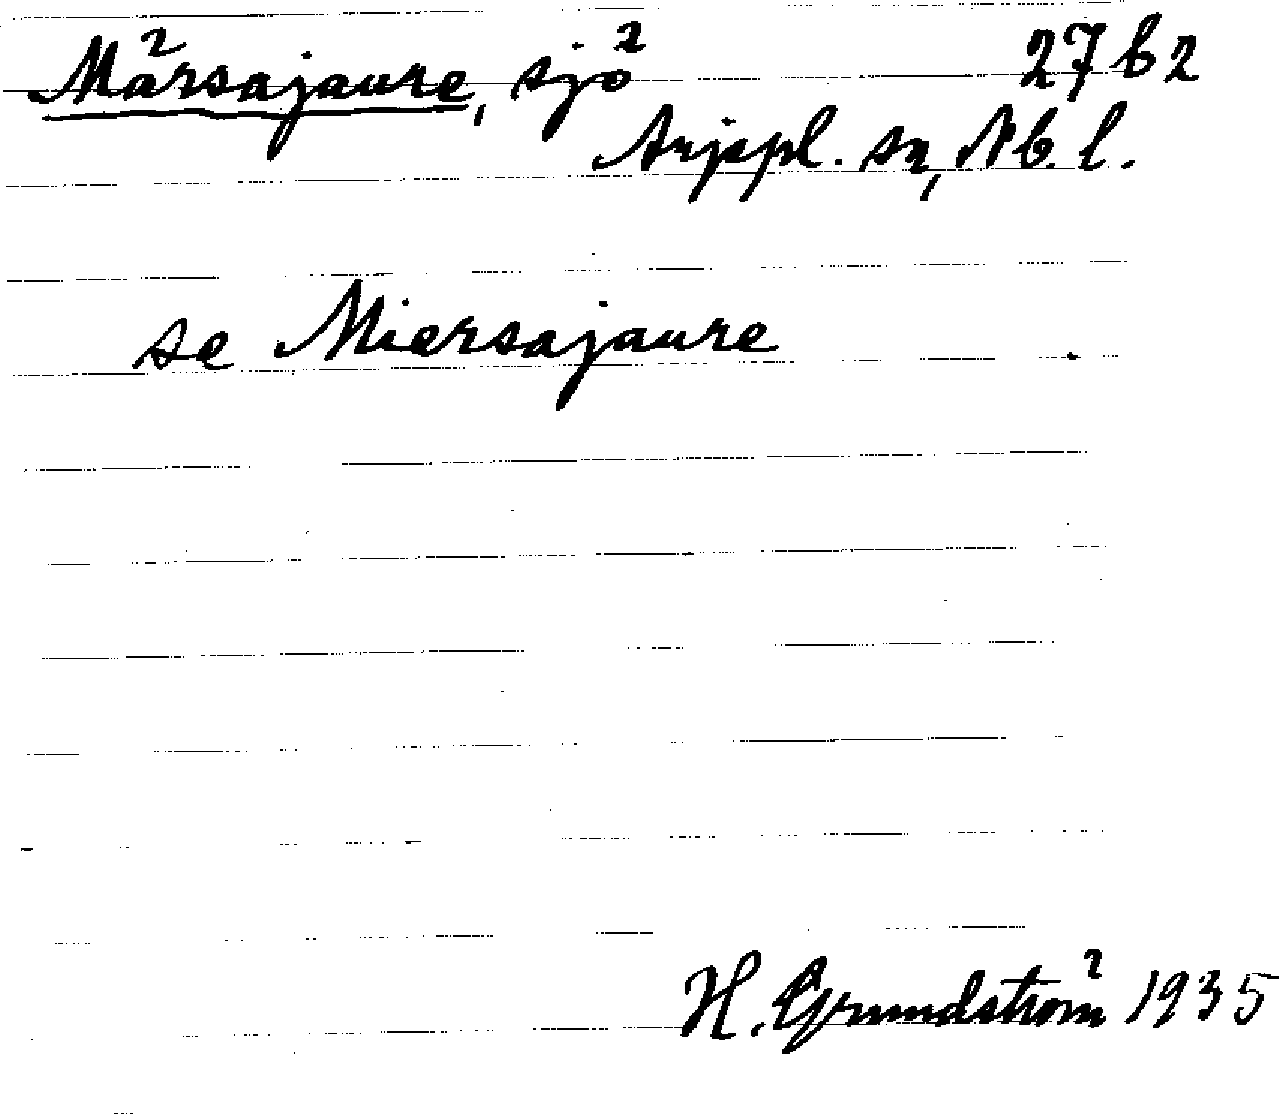 Märsajaure, sjö 27 b 2
Arjepl. sn, Nb. l.
se Miersajaure
H. Grundström 1935